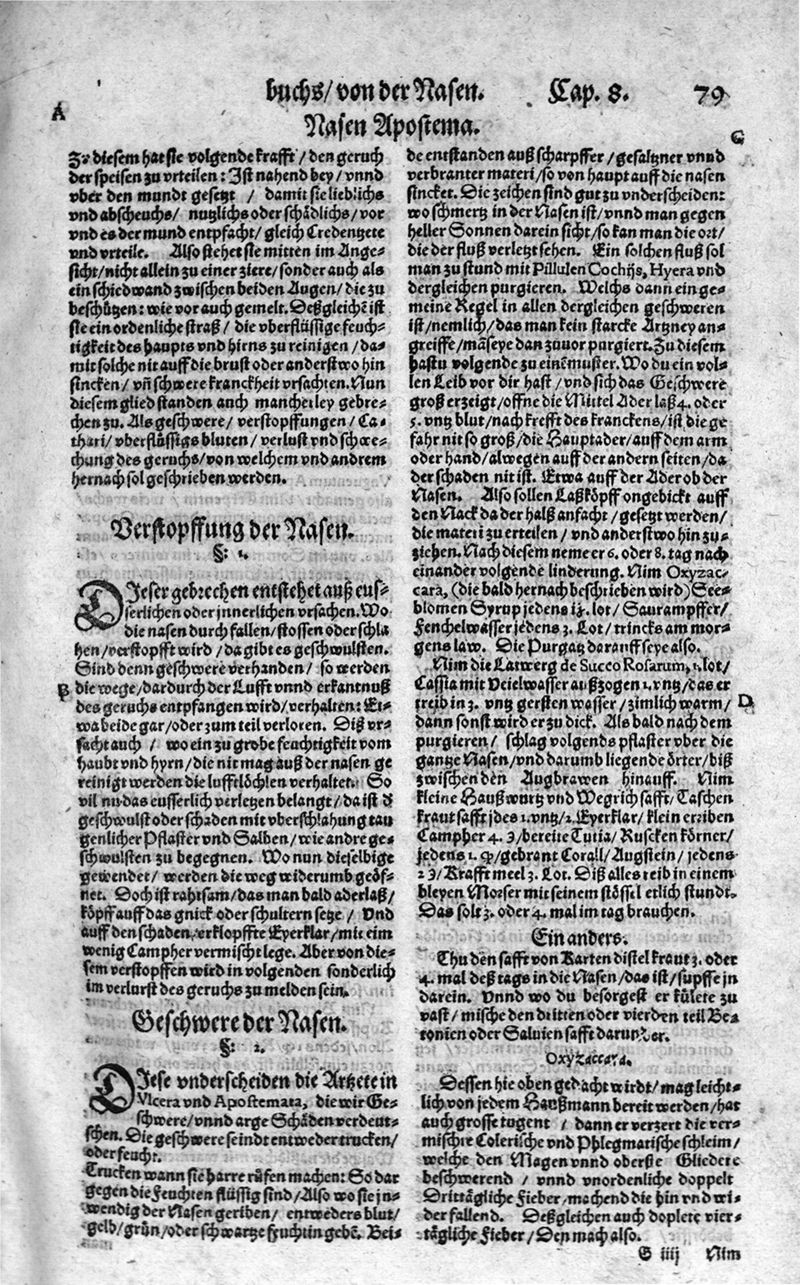 buchs/ von der Nasen. Cap. 8. 79
Nasen Apostema.
A
Zu diesem hat sie volgende krafft/ den geruch
der speisen zu vrteilen: Ist nahend bey/ vnnd
vber den mundt gesetzt / damit sie lieblichs
vnd abscheuchs/ nutzlichs oder schädlichs/ vor
vnd es der mund entpfacht/ gleich Credentzete
vnd vrteile. Also stehet sie mitten im Ange-
sicht/ nicht allein zu einer ziere/ sonder auch als
ein schiedwand zwischen beiden Augen/ die zu
beschützen: wie vor auch gemelt. Deßgleichẽ ist
sie ein ordenliche straß/ die vberflüssige feuch-
tigkeit des haupts vnd hirns zu reinigen / da-
mit solche nit auff die brust oder anderstwo hin
sincken/ vñ schwere kranckheit vrsachten. Nun
diesem glied standen auch mancherley gebre-
chen zu. Als geschwere/ verstopffungen/ Ca-
thari/ vberflüssigs bluten/ verlust vnd schwe-
chung des geruchs/ von welchem vnd andrem
hernach sol geschrieben werden.
Verstopffung der Nasen.
§: 1.
DIeser gebrechen entstehet auß eus-
serlichen oder jnnerlichen vrsachen. Wo
die nasen durch fallen/ stossen oder schla
hen/ verstopfft wird/ da gibt es geschwulsten.
Sind denn geschwere verhanden/ so werden
B
die wege/ dardurch der Lufft vnnd erkantnuß
des geruchs entpfangen wird/ verhalten: Et-
wa beide gar/ oder zum teil verloren. Diß vr-
sacht auch / wo ein zu grobe feuchtigkeit vom
haubt vnd hyrn/ die nit mag auß der nasen ge
reinigt werden die lufftlöchlen verhaltet. So
vil nu das eusserlich verletzen belangt/ da ist d̕
geschwulst oder schaden mit vberschlahung tau
genlicher Pflaster vnd Salben/ wie andre ge-
schwulsten zu begegnen. Wo nun dieselbige
gewendet/ werden die weg widerumb geöf-
net. Doch ist rahtsam/ das man bald aderlaß/
köpff auff das gnick oder schultern setze/ Vnd
auff den schaden/ erklopffte Eyerklar/ mit eim
wenig Campher vermischt lege. Aber von die-
sem verstopffen wird in volgenden sonderlich
im verlurst des geruchs zu melden sein.
Geschwere der Nasen.
§: 2.
DIese vnderscheiden die Artzete in
Vlcera vnd Apostemata, die wir Ge-
schwere/ vnnd arge Schäden verdeut-
schen. Die geschwere seindt entweder trucken/
oder feucht.
Trucken wann sie harte rüfen machen: So dar
gegen die Feuchten flüssig sind/ Also wo sie in-
wendig der Nasen geriben/ entweders blut/
gelb/ grün/ oder schwartze feuchtin gebẽ. Bei-
G
de entstanden auß scharpffer/ gesaltzner vnnd
verbranter materi/ so von haupt auff die nasen
sincket. Die zeichen sind gut zu vnderscheiden:
wo schmertz in der Nasen ist/ vnnd man gegen
heller Sonnen darein sicht/ so kan man die ort/
die der fluß verletzt sehen. Ein solchen fluß sol
man zu stund mit Pillulen Cochijs, Hyera vnd
dergleichen purgieren. Welchs dann ein ge-
meine Regel in allen dergleichen geschweren
ist/ nemlich/ das man kein starcke Artzney an-
greiffe/ mã seye dan zuvor purgiert. Zu diesem
hastu volgende zu einẽ muster. Wo du ein vol-
len Leib vor dir hast / vnd sich das Geschwere
groß erzeigt/ offne die Mittel Ader laß 4. oder
5. vntz blut/ nach krefft des kranckens/ ist die ge
fahr nit so groß/ die Hauptader/ auff dem arm
oder hand/ alwegen auff der andern seiten/ da
der schaden nit ist. Etwa auff der Ader ob der
Nasen. Also sollen Laßköpff ongebickt auff
den Nack da der halß anfacht / gesetzt werden/
die materi zu erteilen / vnd anderstwo hin zu-
ziehen. Nach diesem neme er 6. oder 8. tag nach
einander volgende linderung. Nim Oxyzac-
cara, (die bald hernach beschrieben wird) See-
blomen Syrup jedens iȷ. lot/ Saurampffer/
Fenchelwasser jedens 3. Lot/ trincks am mor-
gens law. Die Purgatz darauff seye also.
Nim die Latwerg de Succo Rosarum, 1. lot/
Cassia mit Veielwasser außzogen 1. vntz/ das er
D
treib in 3. vntz gersten wasser / zimlich warm/
dann sonst wird er zu dick. Als bald nach dem
purgieren/ schlag volgends pflaster vber die
gantze Nasen/ vnd darumb liegende örter/ biß
zwischen den Augbrawen hinauff. Nim
kleine Haußwurtz vnd Wegrich safft/ Taschen
kraut safft jdes 1. vntz/ 2. Eyerklar/ klein erriben
Campher 4. ʒ/ bereite Tutia/ Ruscken körner/
jedens 1. / gebrant Corall/ Augstein/ jedens
2 ʒ/ Krafft meel 3. Lot. Diß alles reib in einem
bleyen Morser mit seinem stössel etlich stundt.
Das solt 3. oder 4. mal im tag brauchen.
Ein anders.
Thu den safft von Karten distel kraut 3. oder
4. mal deß tags in die Nasen/ das ist/ supffe jn
darein. Vnnd wo du besorgest er külete zu
vast/ mische den dritten oder vierden teil Be-
tonien oder Saluien safft darunder.
Oxyzaccara.
Dessen hie oben gedacht wirdt/ mag leicht-
lich von jedem Haußmann bereit werden/ hat
auch grosse tugent / dann er verzert die ver-
mischte Colerische vnd Phlegmatische schleim/
welche den Magen vnnd oberste Gliedere
beschwerend / vnnd vnordenliche doppelt
Drittägliche Fieber/ machend die hin vnd wi-
der fallend. Deßgleichen auch doplete vier-
tägliche Fieber/ Den mach also.
G iiij Nim